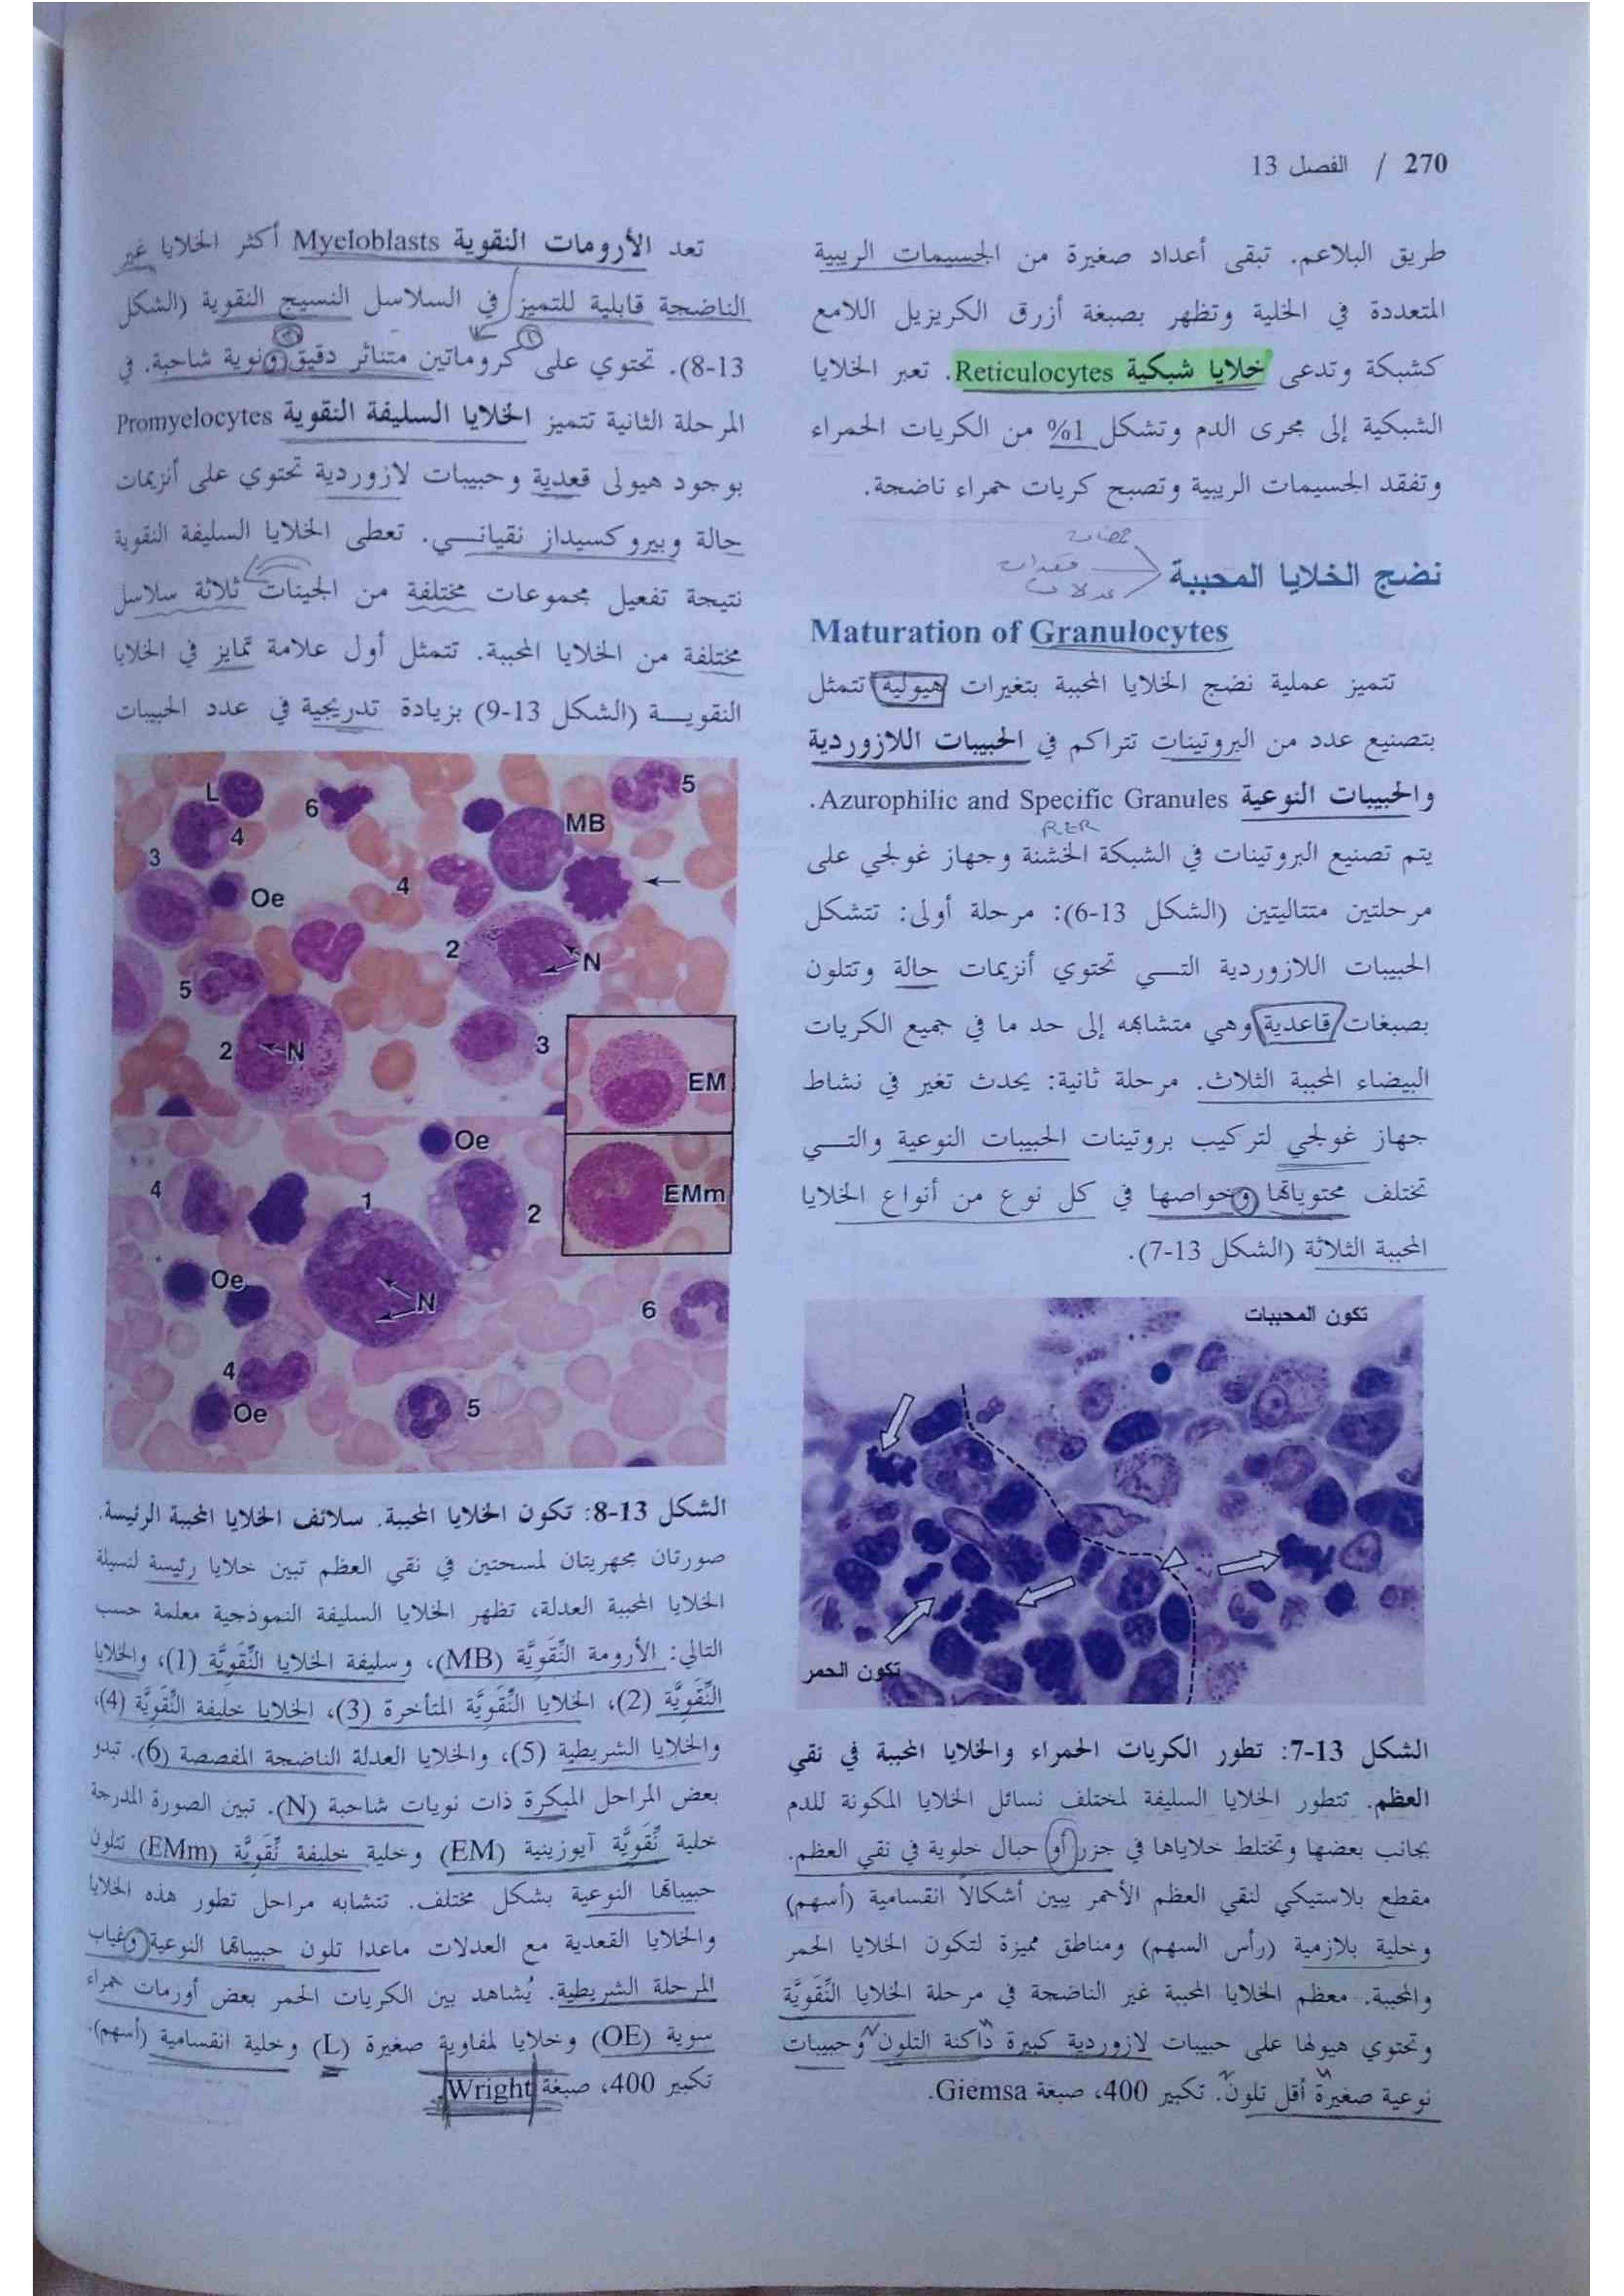 270 / الفصل 13
طريق البلاعم. تبقى أعداد صغيرة من الجسيمات الريبية
المتعددة في الخلية وتظهر بصبغة أزرق الكريزيل اللامع
كشبكة وتدعى خلايا شبكية Reticulocytes. تعبر الخلايا
الشبكية إلى مجرى الدم وتشكل 1% من الكريات الحمراء
وتفقد الجسيمات الريبية وتصبح كريات حمراء ناضجة.
نضج الخلايا المحببة
Maturation of Granulocytes
تتميز عملية نضج الخلايا المحببة بتغيرات هيولية تتمثل
بتصنيع عدد من البروتينات تتراكم في الحبيبات اللازوردية
والحبيبات النوعية Azurophilic and Specific Granules.
RER
يتم تصنيع البروتينات في الشبكة الخشنة وجهاز غولجي على
مرحلتين متتاليتين (الشكل 13-6): مرحلة أولى: تتشكل
الحبيبات اللازوردية التـــي تحتوي أنزيمات حالة وتتلون
بصبغات قاعدية وهي متشابهه إلى حد ما في جميع الكريات
البيضاء المحببة الثلاث. مرحلة ثانية: يحدث تغير في نشاط
جهاز غولجي لتركيب بروتينات الحبيبات النوعية والتـــي
تختلف محتوياتها وخواصها في كل نوع من أنواع الخلايا
المحببة الثلاثة (الشكل 13-7).
تكون المحببات
تكون الحمر
الشكل 13-7: تطور الكريات الحمراء والخلايا المحببة في نقي
العظم. تتطور الخلايا السليفة لمختلف نسائل الخلايا المكونة للدم
بجانب بعضها وتختلط خلاياها في جزر أو حبال خلوية في نقي العظم.
مقطع بلاستيكي لنقي العظم الأحمر يبين أشكالاً انقسامية (أسهم)
وخلية بلازمية (رأس السهم) ومناطق مميزة لتكون الخلايا الحمر
والمحببة. معظم الخلايا المحببة غير الناضجة في مرحلة الخلايا النِّقَويَّة
وتحتوي هيولها على حبيبات لازوردية كبيرة داكنة التلون وحبيبات
نوعية صغيرة أقل تلون. تكبير 400، صبغة Giemsa.
تعد الأرومات النقوية Myeloblasts أكثر الخلايا غير
الناضجة قابلية للتميز في السلاسل النسيج النقوية (الشكل
13-8). تحتوي على كروماتين متناثر دقيق ونوية شاحبة. في
المرحلة الثانية تتميز الخلايا السليفة النقوية Promyelocytes
بوجود هيولى قعدية وحبيبات لازوردية تحتوي على أنزيمات
حالة وبيروكسيداز نقيانـــي. تعطى الخلايا السليفة النقوية
نتيجة تفعيل مجموعات مختلفة من الجينات ثلاثة سلاسل
مختلفة من الخلايا المحببة. تتمثل أول علامة تمايز في الخلايا
النقويـــة (الشكل 13-9) بزيادة تدريجية في عدد الحبيبات
L
6
5
4
MB
3
Oe
4
2
N
5
2
N
3
EM
Oe
4
1
2
EMm
Oe
N
6
4
Oe
5
الشكل 13-8: تكون الخلايا المحيبة. سلائف الخلايا المحببة الرئيسة.
صورتان مجهريتان لمسحتين في نقي العظم تبين خلايا رئيسة لنسيلة
الخلايا المحببة العدلة، تظهر الخلايا السليفة النموذجية معلمة حسب
التالي: الأرومة النِّقَويَّة (MB)، وسليفة الخلايا النِّقَويَّة (1)، والخلايا
النِّقَويَّة (2)، الخلايا النِّقَويَّة المتأخرة (3)، الخلايا خليفة النِّقَويَّة (4)،
والخلايا الشريطية (5)، والخلايا العدلة الناضجة المفصصة (6). تبدو
بعض المراحل المبكرة ذات نويات شاحبة (N). تبين الصورة المدرجة
خلية نِّقَويَّة آيوزينية (EM) وخلية خليفة نِّقَويَّة (EMm) تتلون
حبيباتها النوعية بشكل مختلف. تتشابه مراحل تطور هذه الخلايا
والخلايا القعدية مع العدلات ماعدا تلون حبيباتها النوعية وغياب
المرحلة الشريطية. يُشاهد بين الكريات الحمر بعض أورمات حمراء
سوية (OE) وخلايا لمفاوية صغيرة (L) وخلية انقسامية (أسهم).
تكبير 400، صبغة Wright.